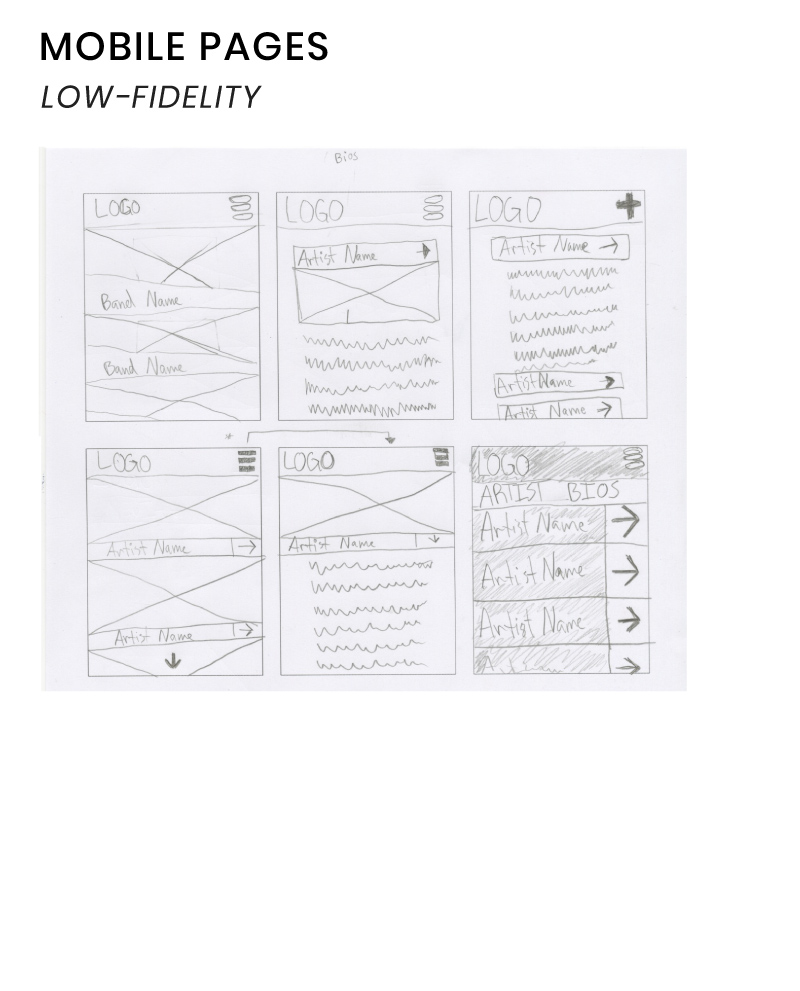 MOBILE PAGES
LOW-FIDELITY
Bios
LOGO
Band Name
Band Name
LOGO
Artist Name
LOGO
Artist Name
Artist Name
Artist Name
*
LOGO
Artist Name
Artist Name
LOGO
Artist Name
LOGO
ARTIST BIOS
Artist Name
Artist Name
Artist Name